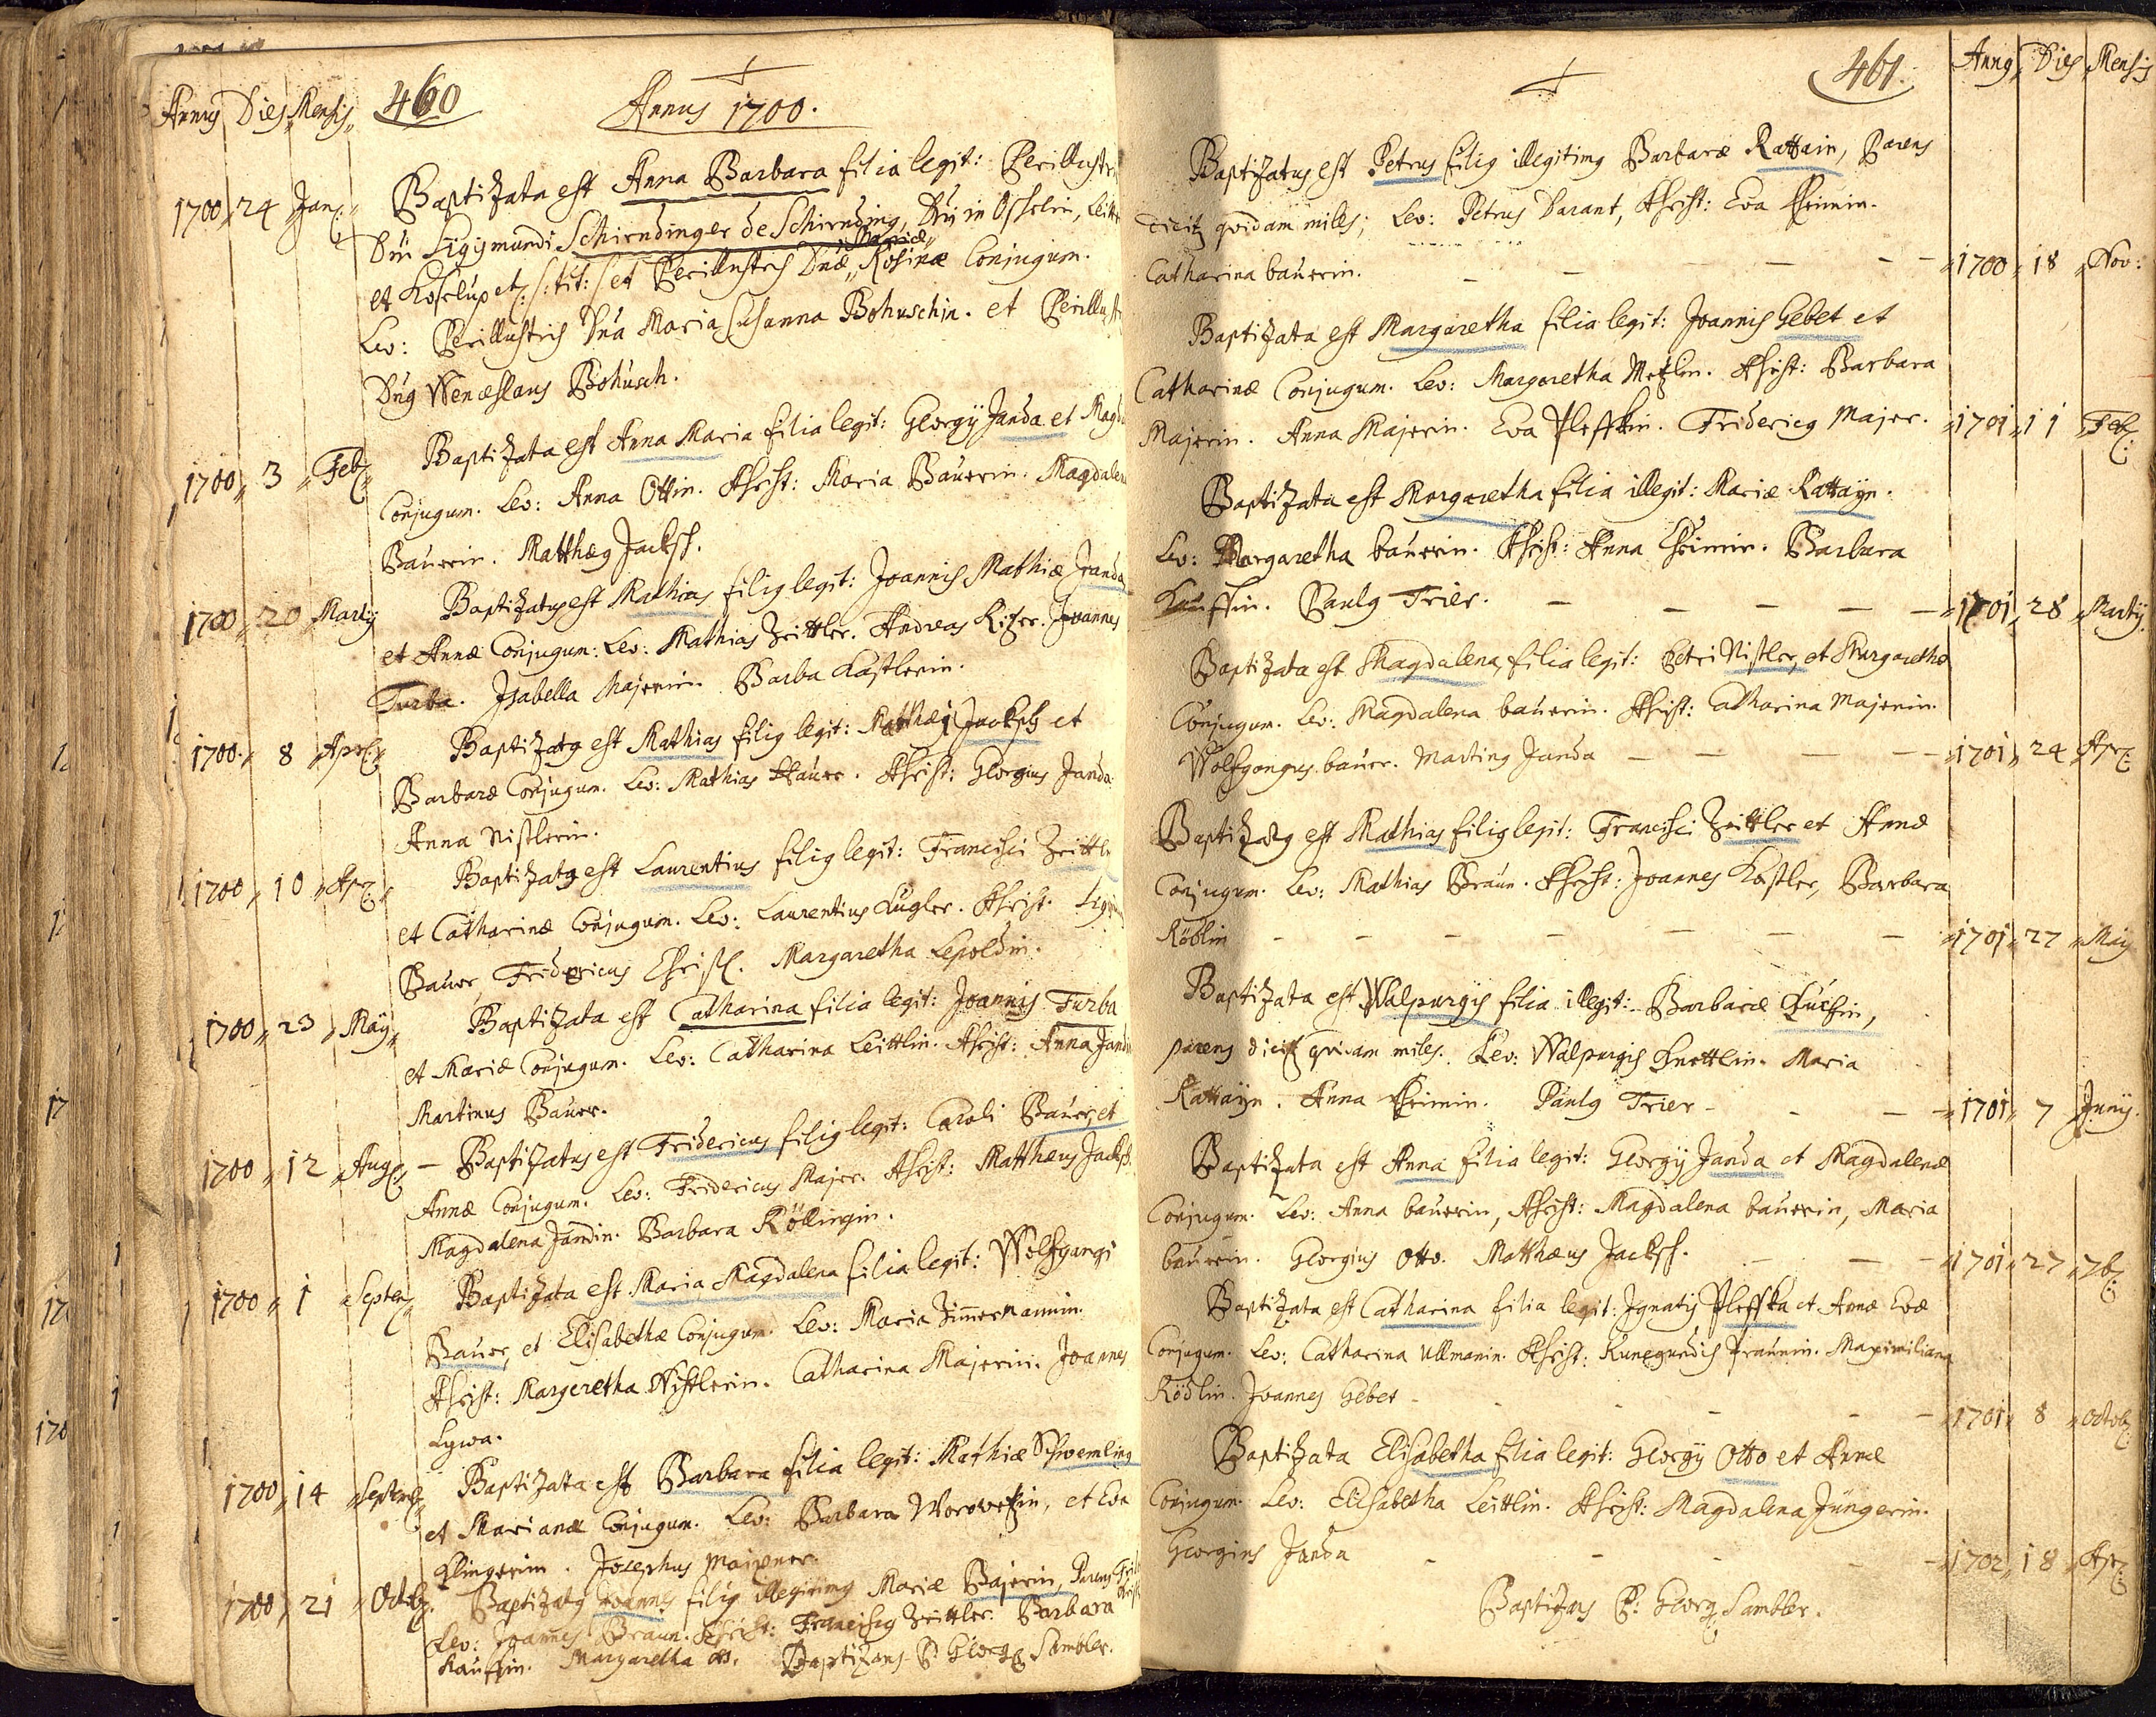 Annus Dies Mensis
460
Annus 1700.
1700 24 Jan:
Baptizata est Anna Barbara filia legit: Perillustris
Dni Sigismundi Schirndinger de Schirnding, Dni in
Mariæ
et : tit: et Perillustris Dnæ, Rosinæ Conjugum.
Lev: Perillustris Dna Maria Susanna Bohuschin. et Perillustr
Dnus Wenceslaus Bohusch.
1700 3 Feb:
Baptizata est Anna Maria filia legit: Georgij Janda et Magda
Conjugum. Lev: Anna Ottin. Assist: Maria Bauerin. Magdalena
Bauerin. Matthæus Jacksch.
1700 20 Martij
Baptizatus est Mathias filius legit: Joannis Mathiæ Janda
et Annæ Conjugum: Lev: Mathias Zeittler. Andreas Joannes
Turba. Isabella Majerin. Barba Kastlerin.
1700 8 April:
Baptizatus est Mathias filius legit: Matthæi Jacksch et
Barbaræ Conjugum. Lev: Mathias Bauer. Assist: Georgius Janda
Anna Nistlerin.
1700 10 Apr:
Baptizatus est Laurentius filius legit: Francisci Zeittler
et Catharinæ Conjugum. Lev: Laurentius Kugler. Assist.
Bauer, Fridericus Margaretha Lepoldin.
1700 23 Maij
Baptizata est Catharina filia legit: Joannis Turba
et Mariæ Conjugum. Lev: Catharina Leittlin. Assist: Anna Jandin
Martinus Bauer.
1700 12 Aug:
Baptizatus est Fridericus filius legit: Caroli Bauer, et
Annæ Conjugum. Lev: Fridericus Majer. Assist: Matthæus Jacksch.
Magdalena Jandin. Barbara Röllingin.
1700 1 Septem
Baptizata est Maria Magdalena filia legit: Wolfgangi
Bauer, et Elisabethæ Conjugum. Lev: Maria Zimmermannin.
Assist: Margeretha Nistlerin. Catharina Majerin. Joannes
Lywa.
1700 14 Septemb:
Baptizata est Barbara filia legit: Mathiæ Schwemling
et Marianæ Conjugum. Lev: Barbara Worowetzin, et Eva
Klingerin. Josephus
1700 21 Octob:
Baptizatus Joannes filius illegitimus Mariæ Bajerin, Parens
Lev: Joannes Braun. Assist: Franciscus Zeittler. Barbara
Kauffin. Margaretha Baptizans P. Georg: Sambler.
461.
Annus Dies Mensis
Baptizatus est Petrus filius illegitimus Barbaræ Rattain, Parens
dicitur quidam miles; Lev: Petrus Darant, Assist: Eva
Catharina bauerin.
1700 18 Nov:
Baptizata est Margaretha filia legit: Joannis Gebet et
Catharinæ Conjugum. Lev: Margaretha Metzlin. Assist: Barbara
Majerin. Anna Majerin. Eva Pleffkin. Fridericus Majer.
1701 11 Feb:
Baptizata est Margaretha filia illegit: Mariæ Rattayn.
Lev: Margaretha bauerin. Assist: Anna Barbara
Kauffin. Paulus Trier.
1701 28 Martij
Baptizata est Magdalena, filia legit: Petri Nistler, et Margarethæ
Conjugum. Lev: Magdalena bauerin. Assist: Catharina Majerin.
Wolfgangus bauer. Martinus Janda
1701 24 Apr:
Baptizatus est Mathias filius legit: Francisci Zeittler et Annæ
Conjugum. Lev: Mathias Braun. Assist: Joannes Kastler, Barbara
Röblin
1701 27 Maij
Baptizata est Walpurgis filia illegit: Barbaræ
parens dicitur quidam miles. Lev: Walpurgis Knottlin. Maria
Rattayn. Anna Paulus Trier
1701 7 Junij
Baptizata est Anna filia legit: Georgij Janda et Magdalenæ
Conjugum. Lev: Anna bauerin, Assist: Magdalena bauerin, Maria
bauerin. Georgius Otto. Matthæus Jacksch.
1701 27 7b:
Baptizata est Catharina filia legit: Ignatij Pleffka et Annæ Evæ
Conjugum. Lev: Catharina Ullmanin. Assist: Kunegundis Maximiliana
Rödlin. Joannes Gebet
1701 8 Octob:
Baptizata Elisabetha filia legit: Georgij Otto et Annæ
Conjugum. Lev: Elisabetha Leittlin. Assist: Magdalena Jüngerin.
Georgius Janda
1702 18 Apr:
Baptizans P: Georg: Sambler.